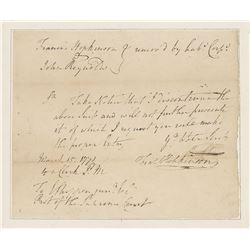 Francis Hopkinson } removed by habs. Corps.
John Reynolds
Sir
Take Notice that I discontinue the
above Suit and will not further prosecute
it of which I request you will make
the proper Entry
March 15. 1791
4 o Clock P.M.
Fras Hopkinson
To Shippen junr. Esqr.
Prot. of the Supreme Court